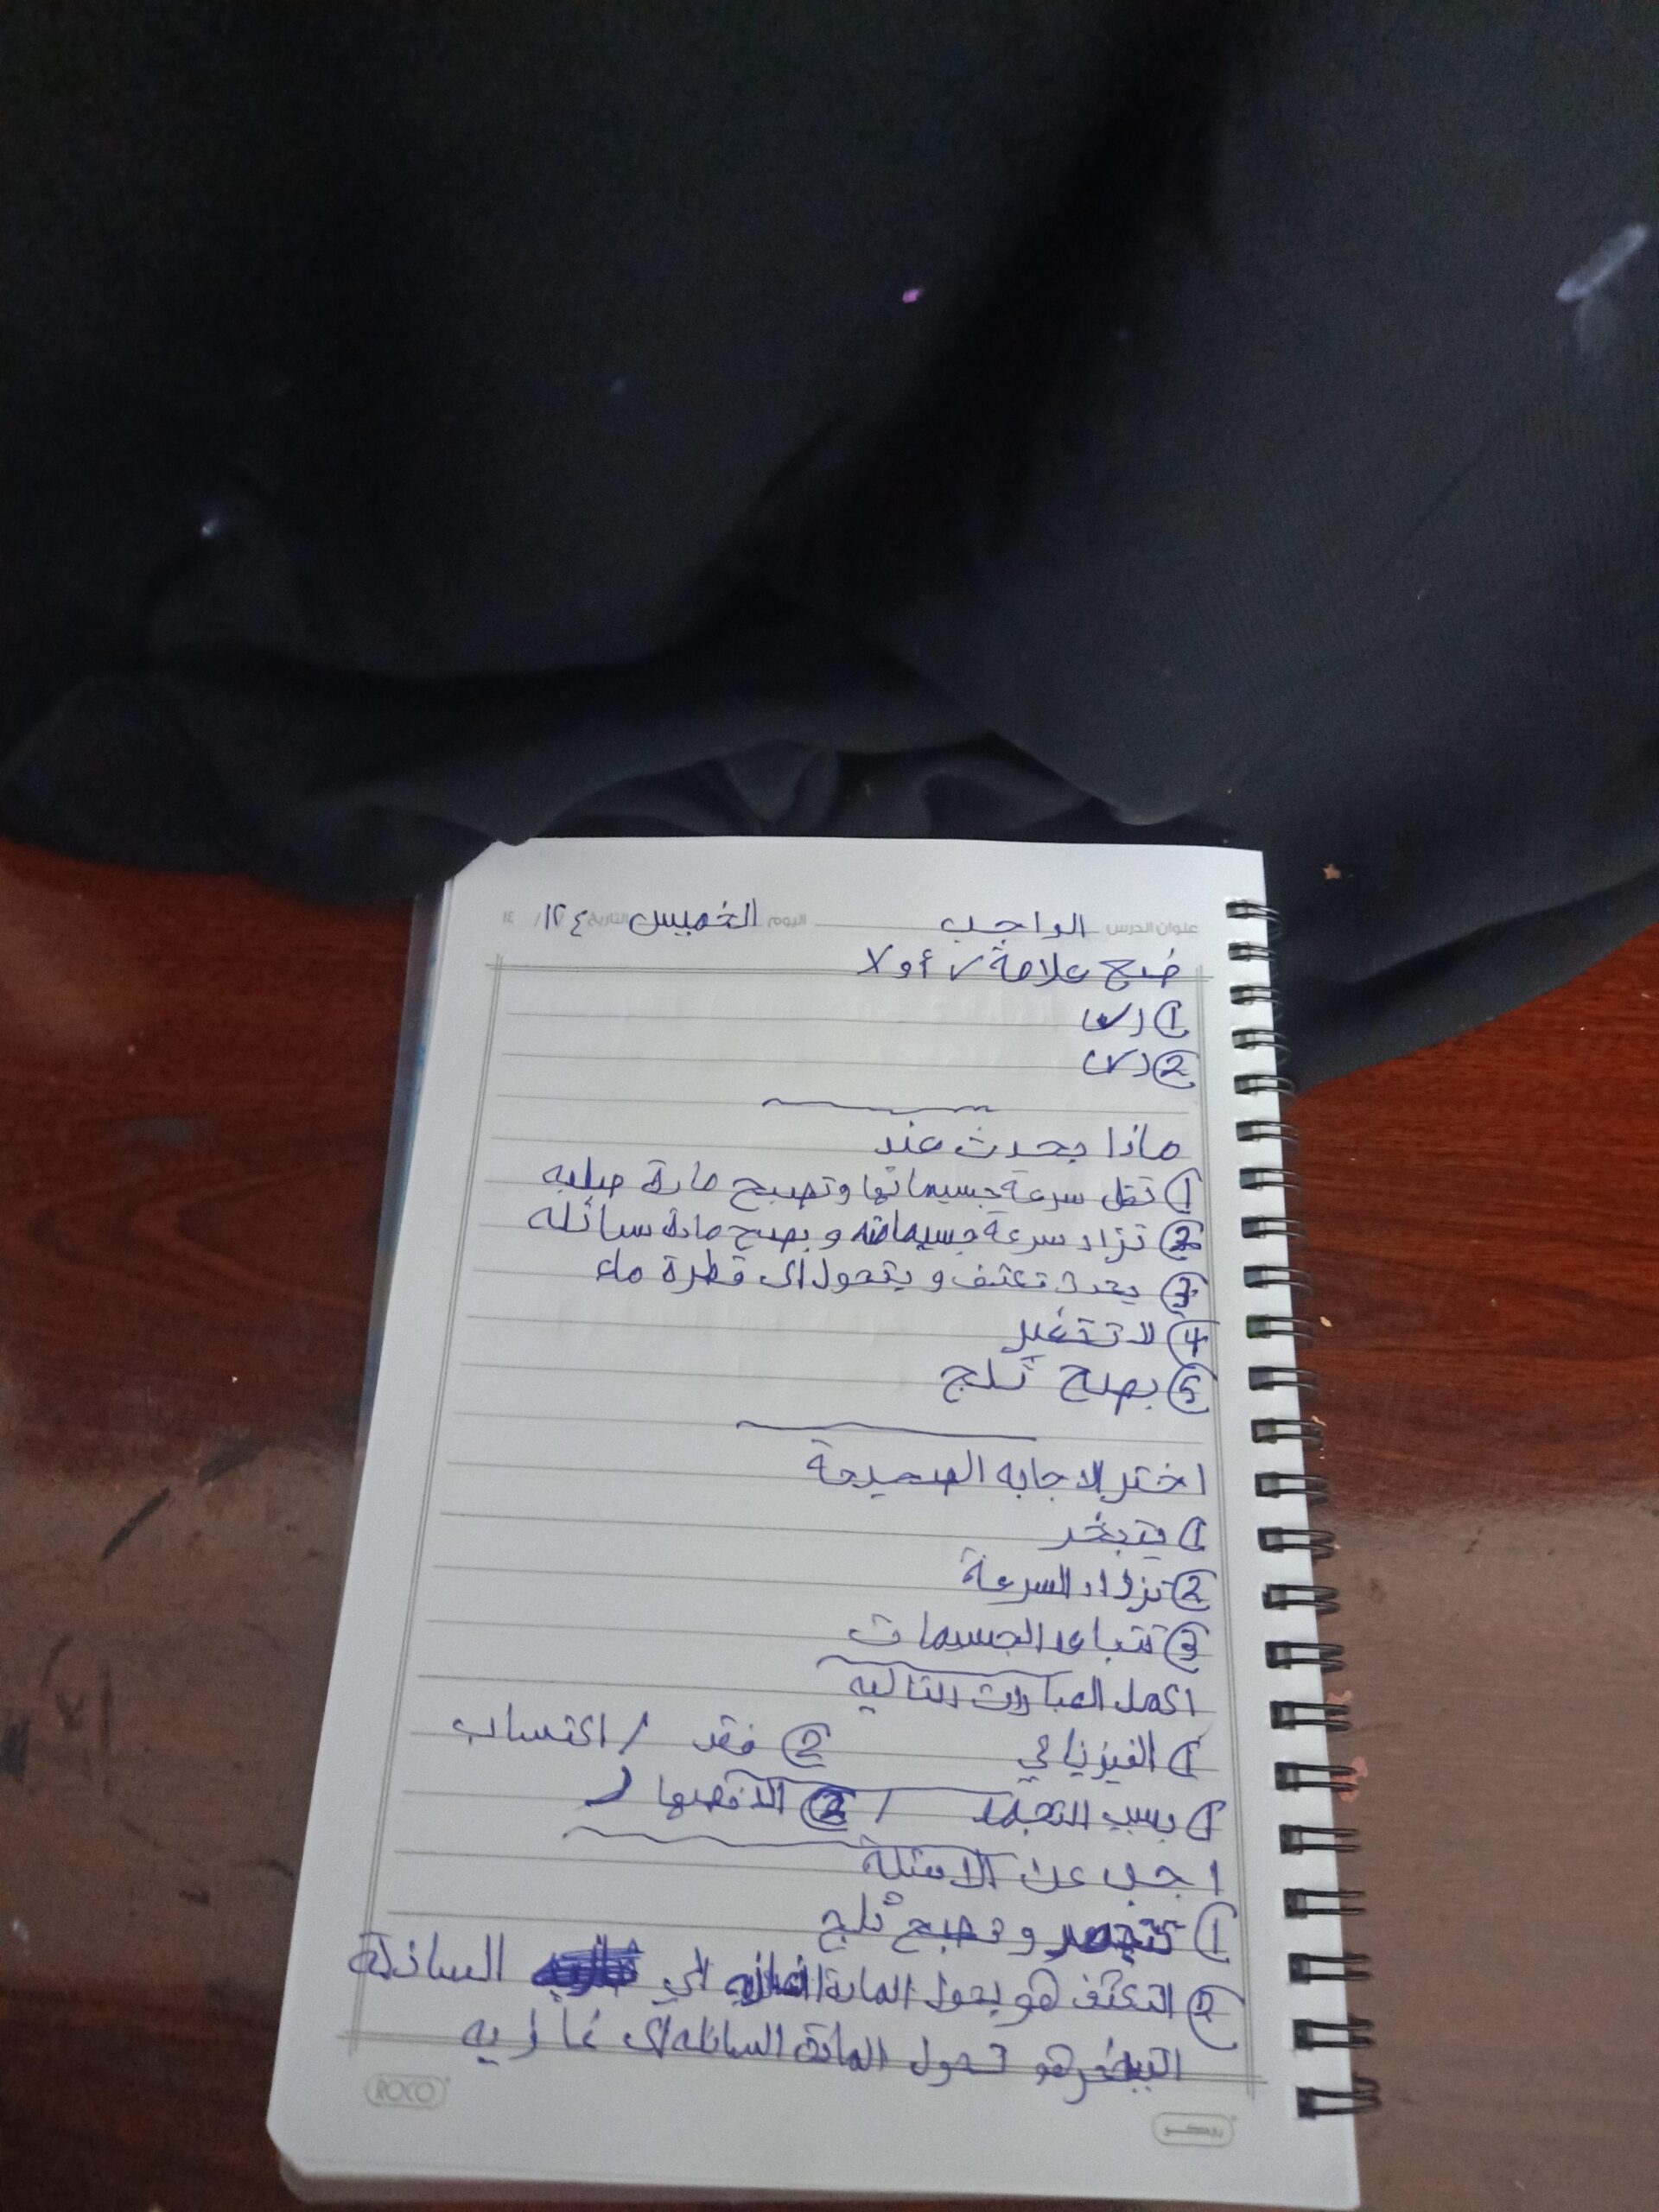 عنوان الدرس الواجب اليوم الخميس التاريخ ١٢٤ / ١٤
ضع علامة ✓ أو ✗
① (✓)
② (✓)
ماذا يحدث عند
① تقل سرعة جسيماتها وتصبح مادة صلبه
② تزاد سرعة جسيماته و يصبح مادة سائله
③ يحدث تكثف و يتحول الى قطرة ماء
④ لا تتغير
⑤ يصبح ثلج
اختر الاجابه الصحيحة
① يتبخر
② تزداد السرعة
③ تتباعد الجسيمات
اكمل العبارات التاليه
① الفيزيائي ② فقد / اكتساب
① بسبب التجمد / ②
اجب عن الاسئلة
① تتجمد و تصبح ثلج
② التكثف هو يحول المادة الغازيه الي السائلة
التبخر هو تحول المادة السائله الى غازيه
ROCO
روكو